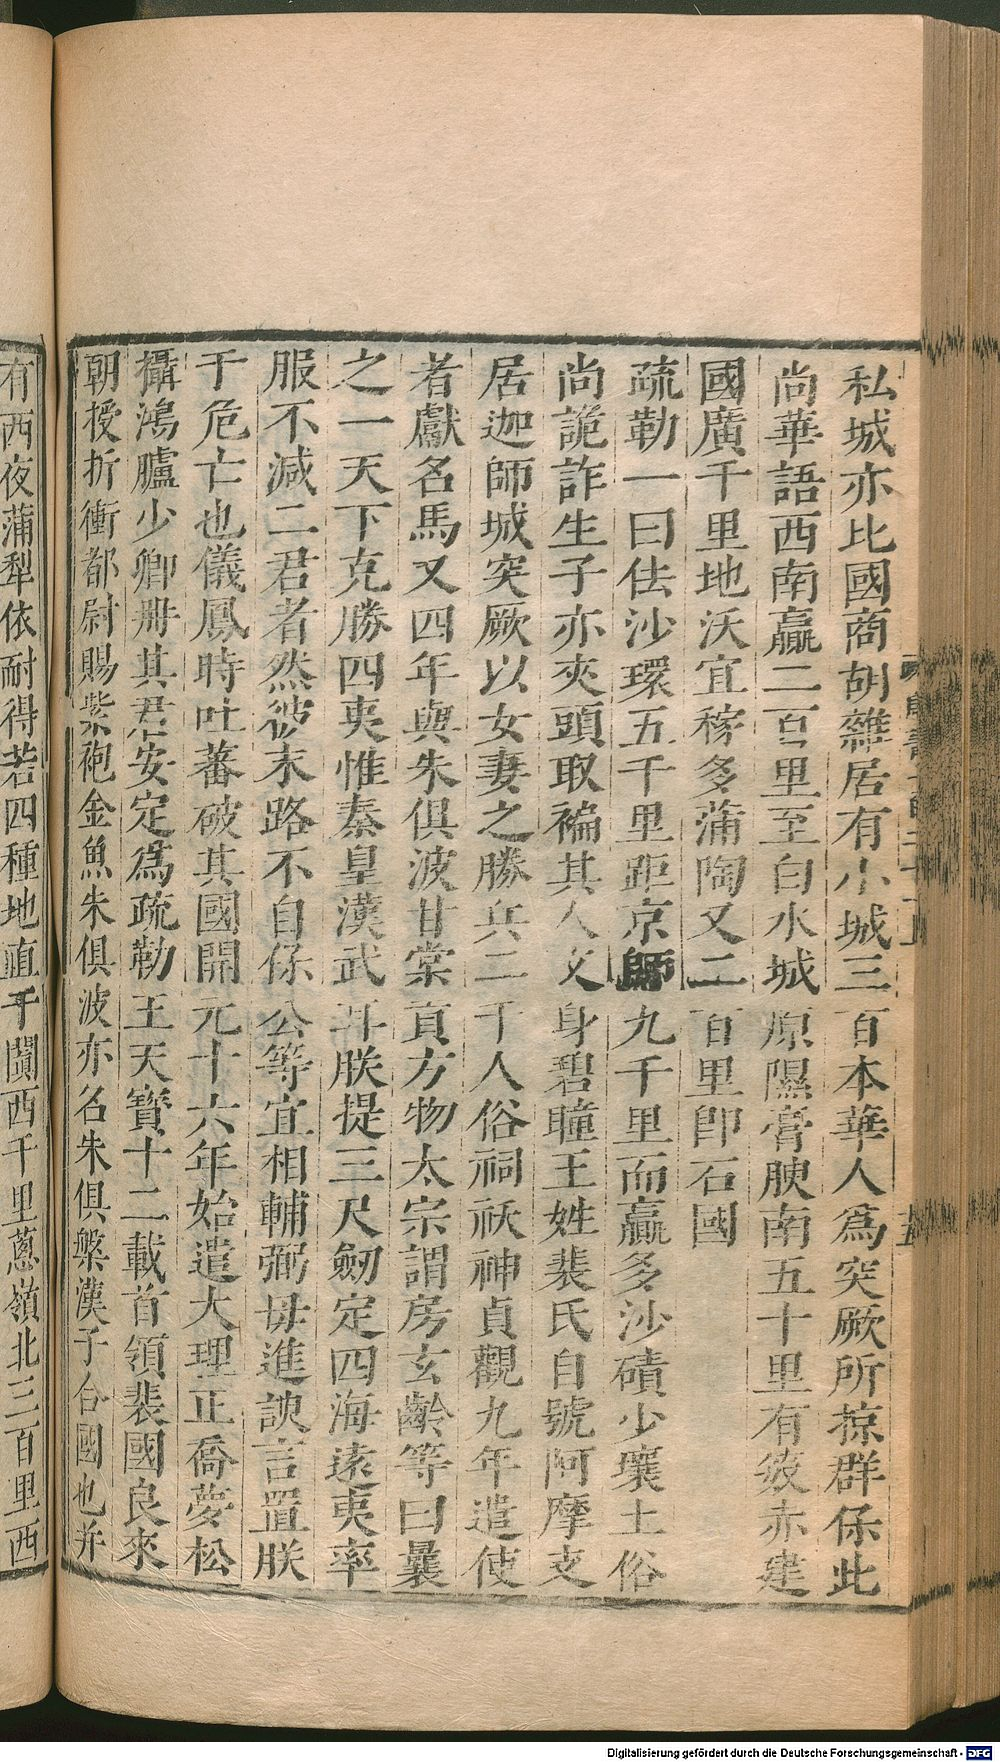 私城亦比國商胡雜居有小城三百本華人爲突厥所掠群保此
尚華語西南贏二百里至白水城原隰膏腴南五十里有笯赤建
國廣千里地沃宜稼多蒲陶又二百里即石國
疏勒一曰佉沙環五千里距京師九千里而贏多沙磧少壤土俗
尚詭詐生子亦夾頭取褊其人文身碧瞳王姓裴氏自號阿摩支
居迦師城突厥以女妻之勝兵二千人俗祠祅神貞觀九年遣使
者獻名馬又四年與朱俱波甘棠貢方物太宗謂房玄齡等曰曩
之一天下克勝四夷惟秦皇漢武耳朕提三尺劒定四海遠夷率
服不減二君者然彼末路不自保公等宜相輔弼毋進諛言置朕
于危亡也儀鳳時吐蕃破其國開元十六年始遣大理正喬夢松
攝鴻臚少卿冊其君安定爲疏勒王天寶十二載首領裴國良來
朝授折衝都尉賜紫袍金魚朱俱波亦名朱俱槃漢子合國也并
有西夜蒲犁依耐得若四種地直于闐西千里蔥嶺北三百里西
五
Digitalisierung gefördert durch die Deutsche Forschungsgemeinschaft - DFG